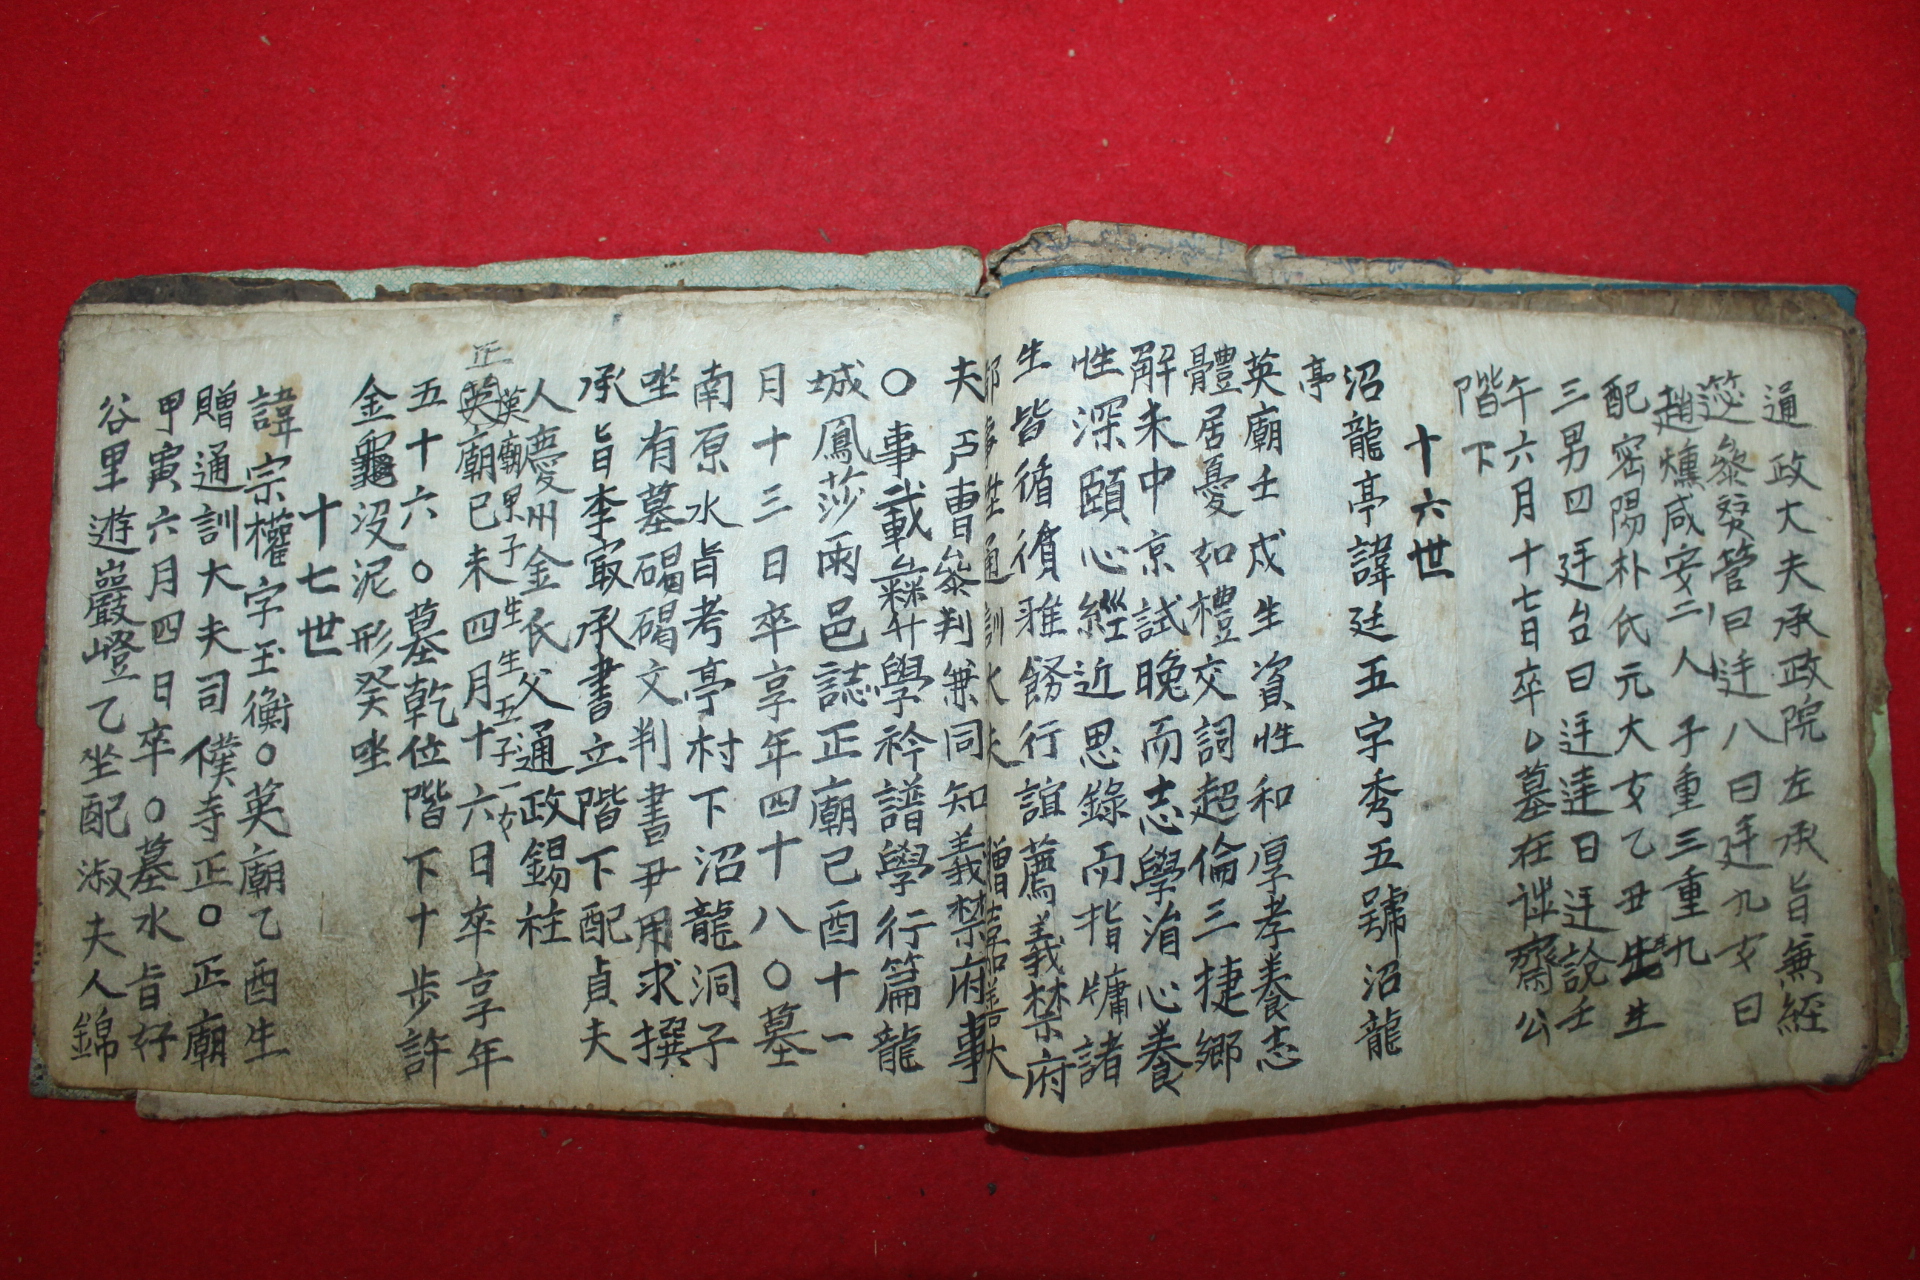 通政大夫承政院左承旨兼經
筵參贊管曰廷八曰廷九女曰
趙爀咸安二人子重三重九
配密陽朴氏元大女乙丑生生
三男四廷台曰廷達曰廷說壬
午六月十七日卒墓在齋公
階下
十六世
沼龍亭諱廷五字秀五號沼龍
亭
英廟壬戌生資性和厚孝養志
體居憂如禮交詞超倫三捷鄉
解未中京試晩而志學治心養
性深頤心經近思錄而指牗諸
生皆循循雅飭行誼薦義禁府
都事性通訓大夫贈嘉善大
夫戶曹參判兼同知義禁府事
○事載學衿譜學行篇龍
城鳳莎兩邑誌正廟己酉十一
月十三日卒享年四十八○墓
南原水旨考亭村下沼龍洞子
坐有墓碣碣文判書尹用求撰
承旨李㝡承書立階下配貞夫
人慶州金氏父通政錫柱
英廟甲子生生五子一女
正廟己未四月十六日卒享年
五十六○墓乾位階下十步許
金龜沒泥形癸坐
十七世
諱宗權字玉衡○英廟乙酉生
贈通訓大夫司僕寺正○正廟
甲寅六月四日卒○墓水旨好
谷里遊巖嶝乙坐配淑夫人錦